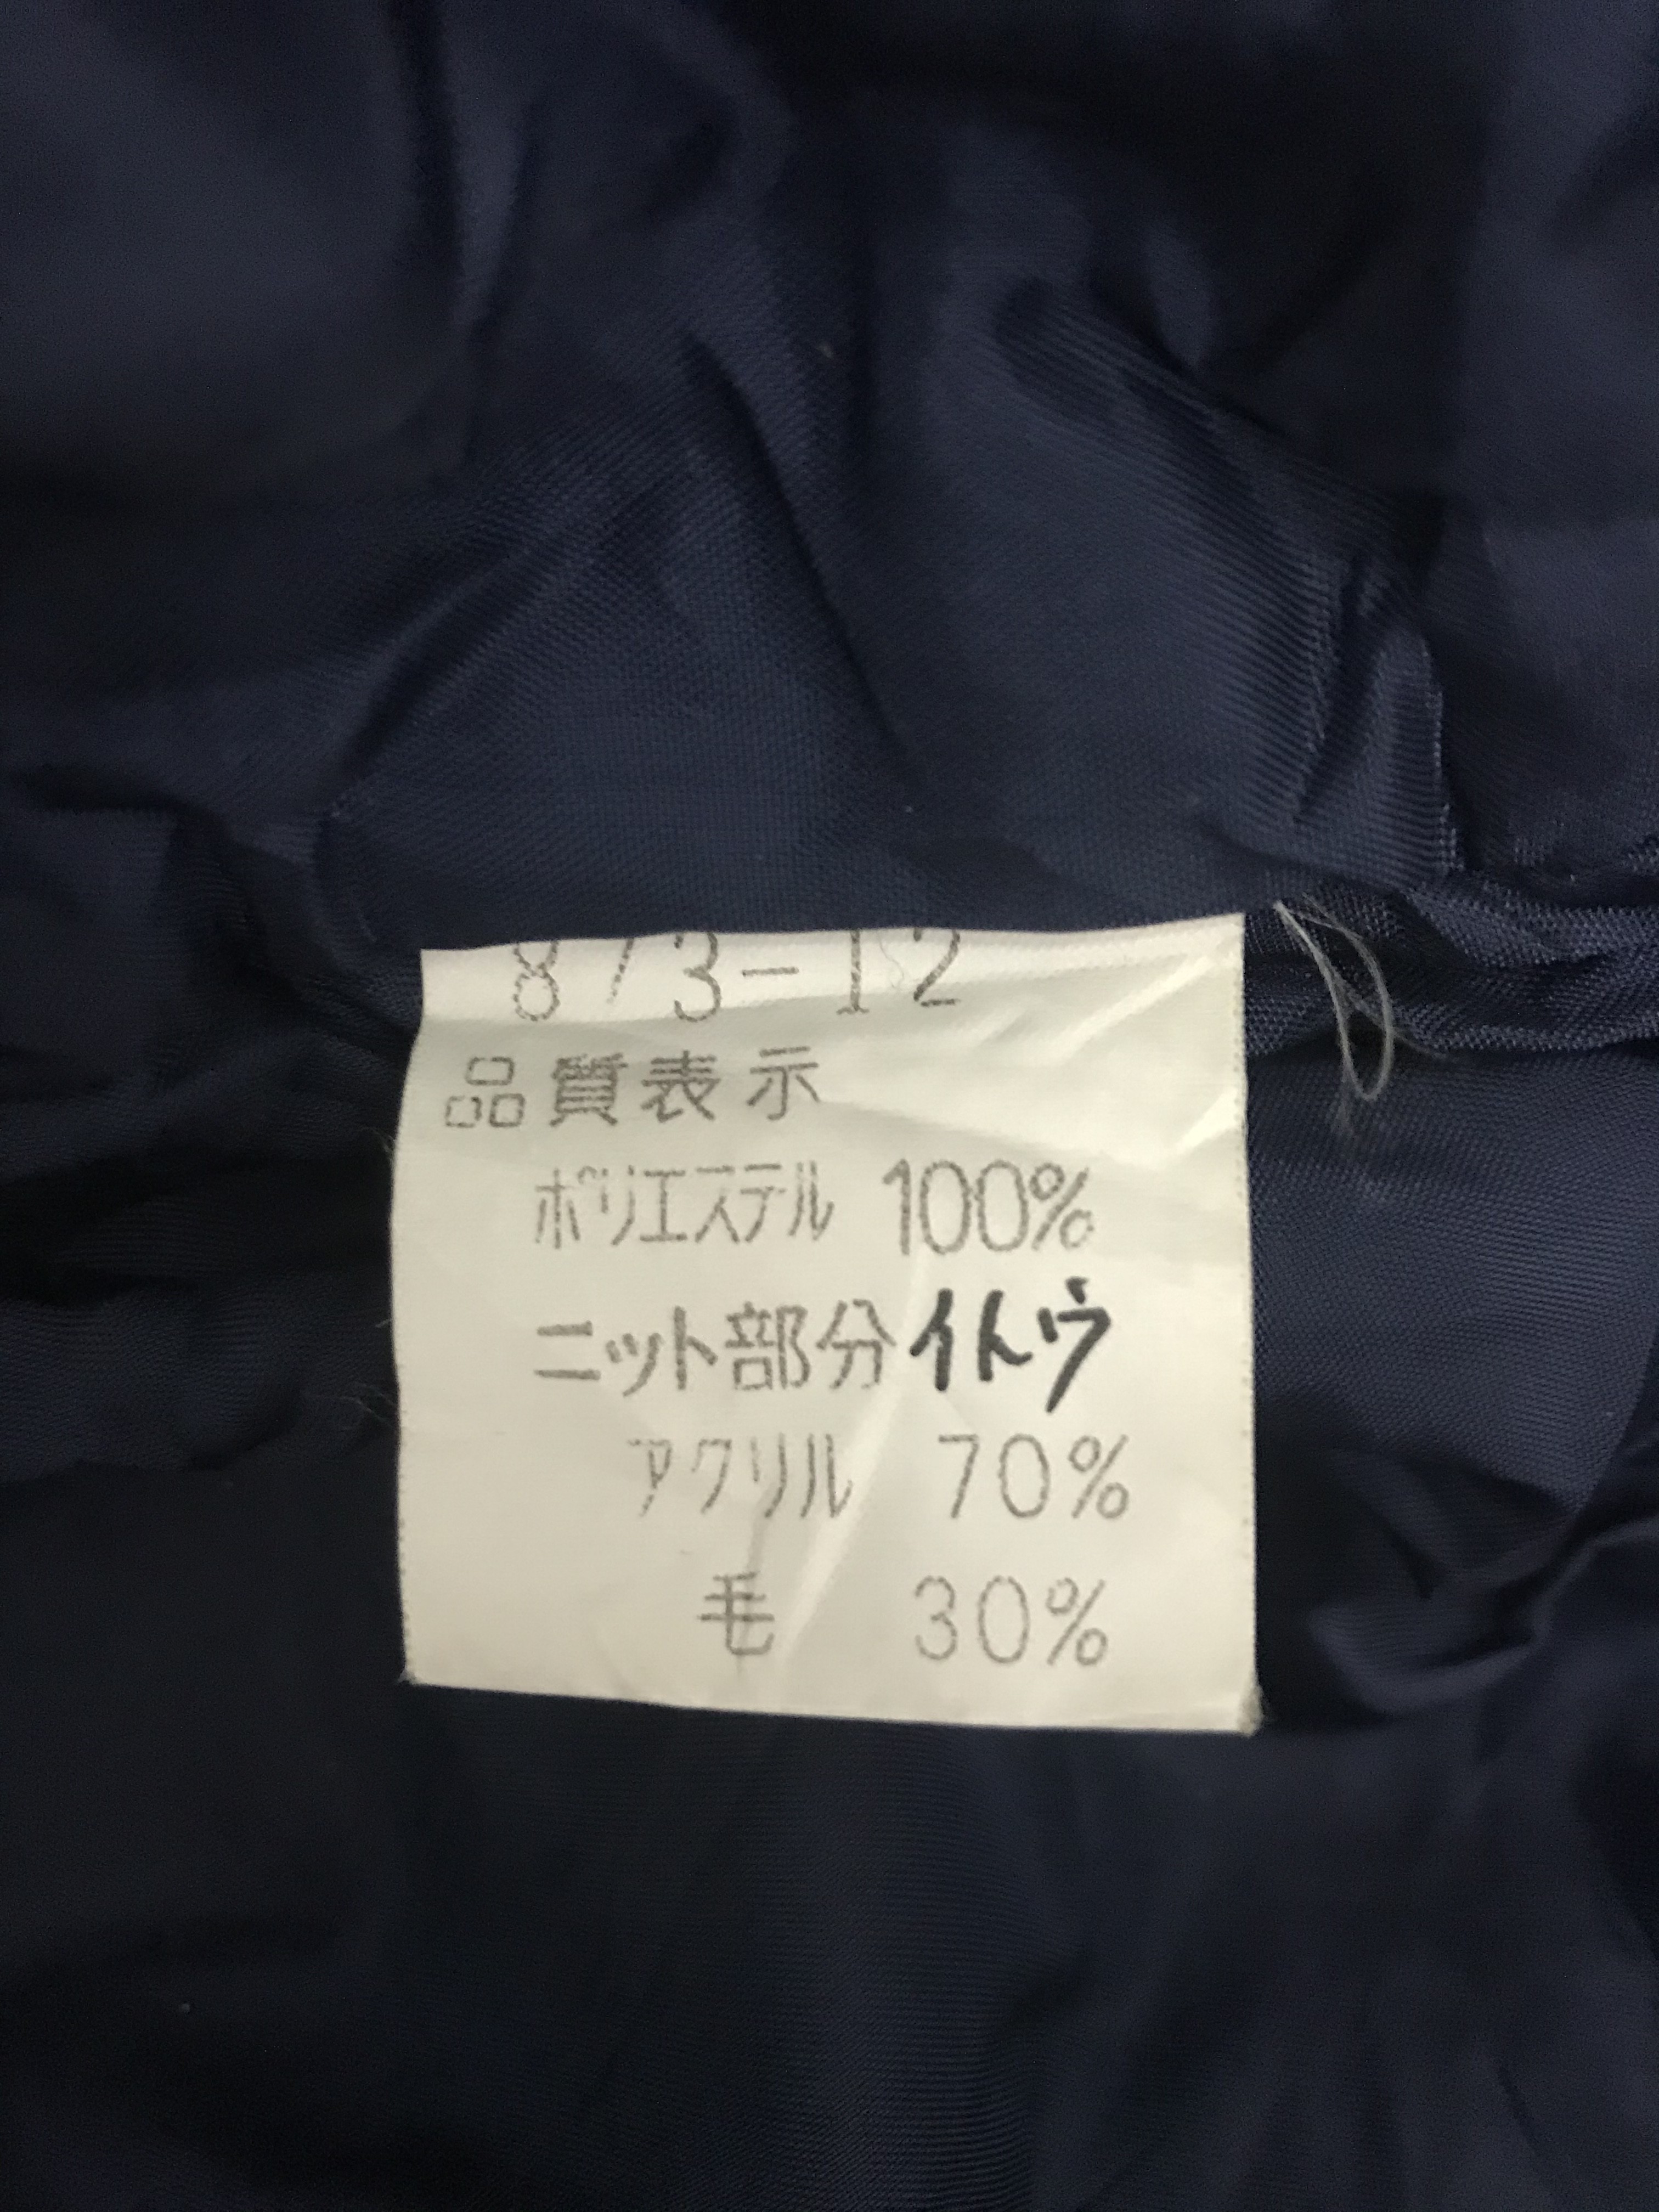 品質表示
ポリエステル 100%
ニット部分 イトウ
アクリル 70%
毛 30%